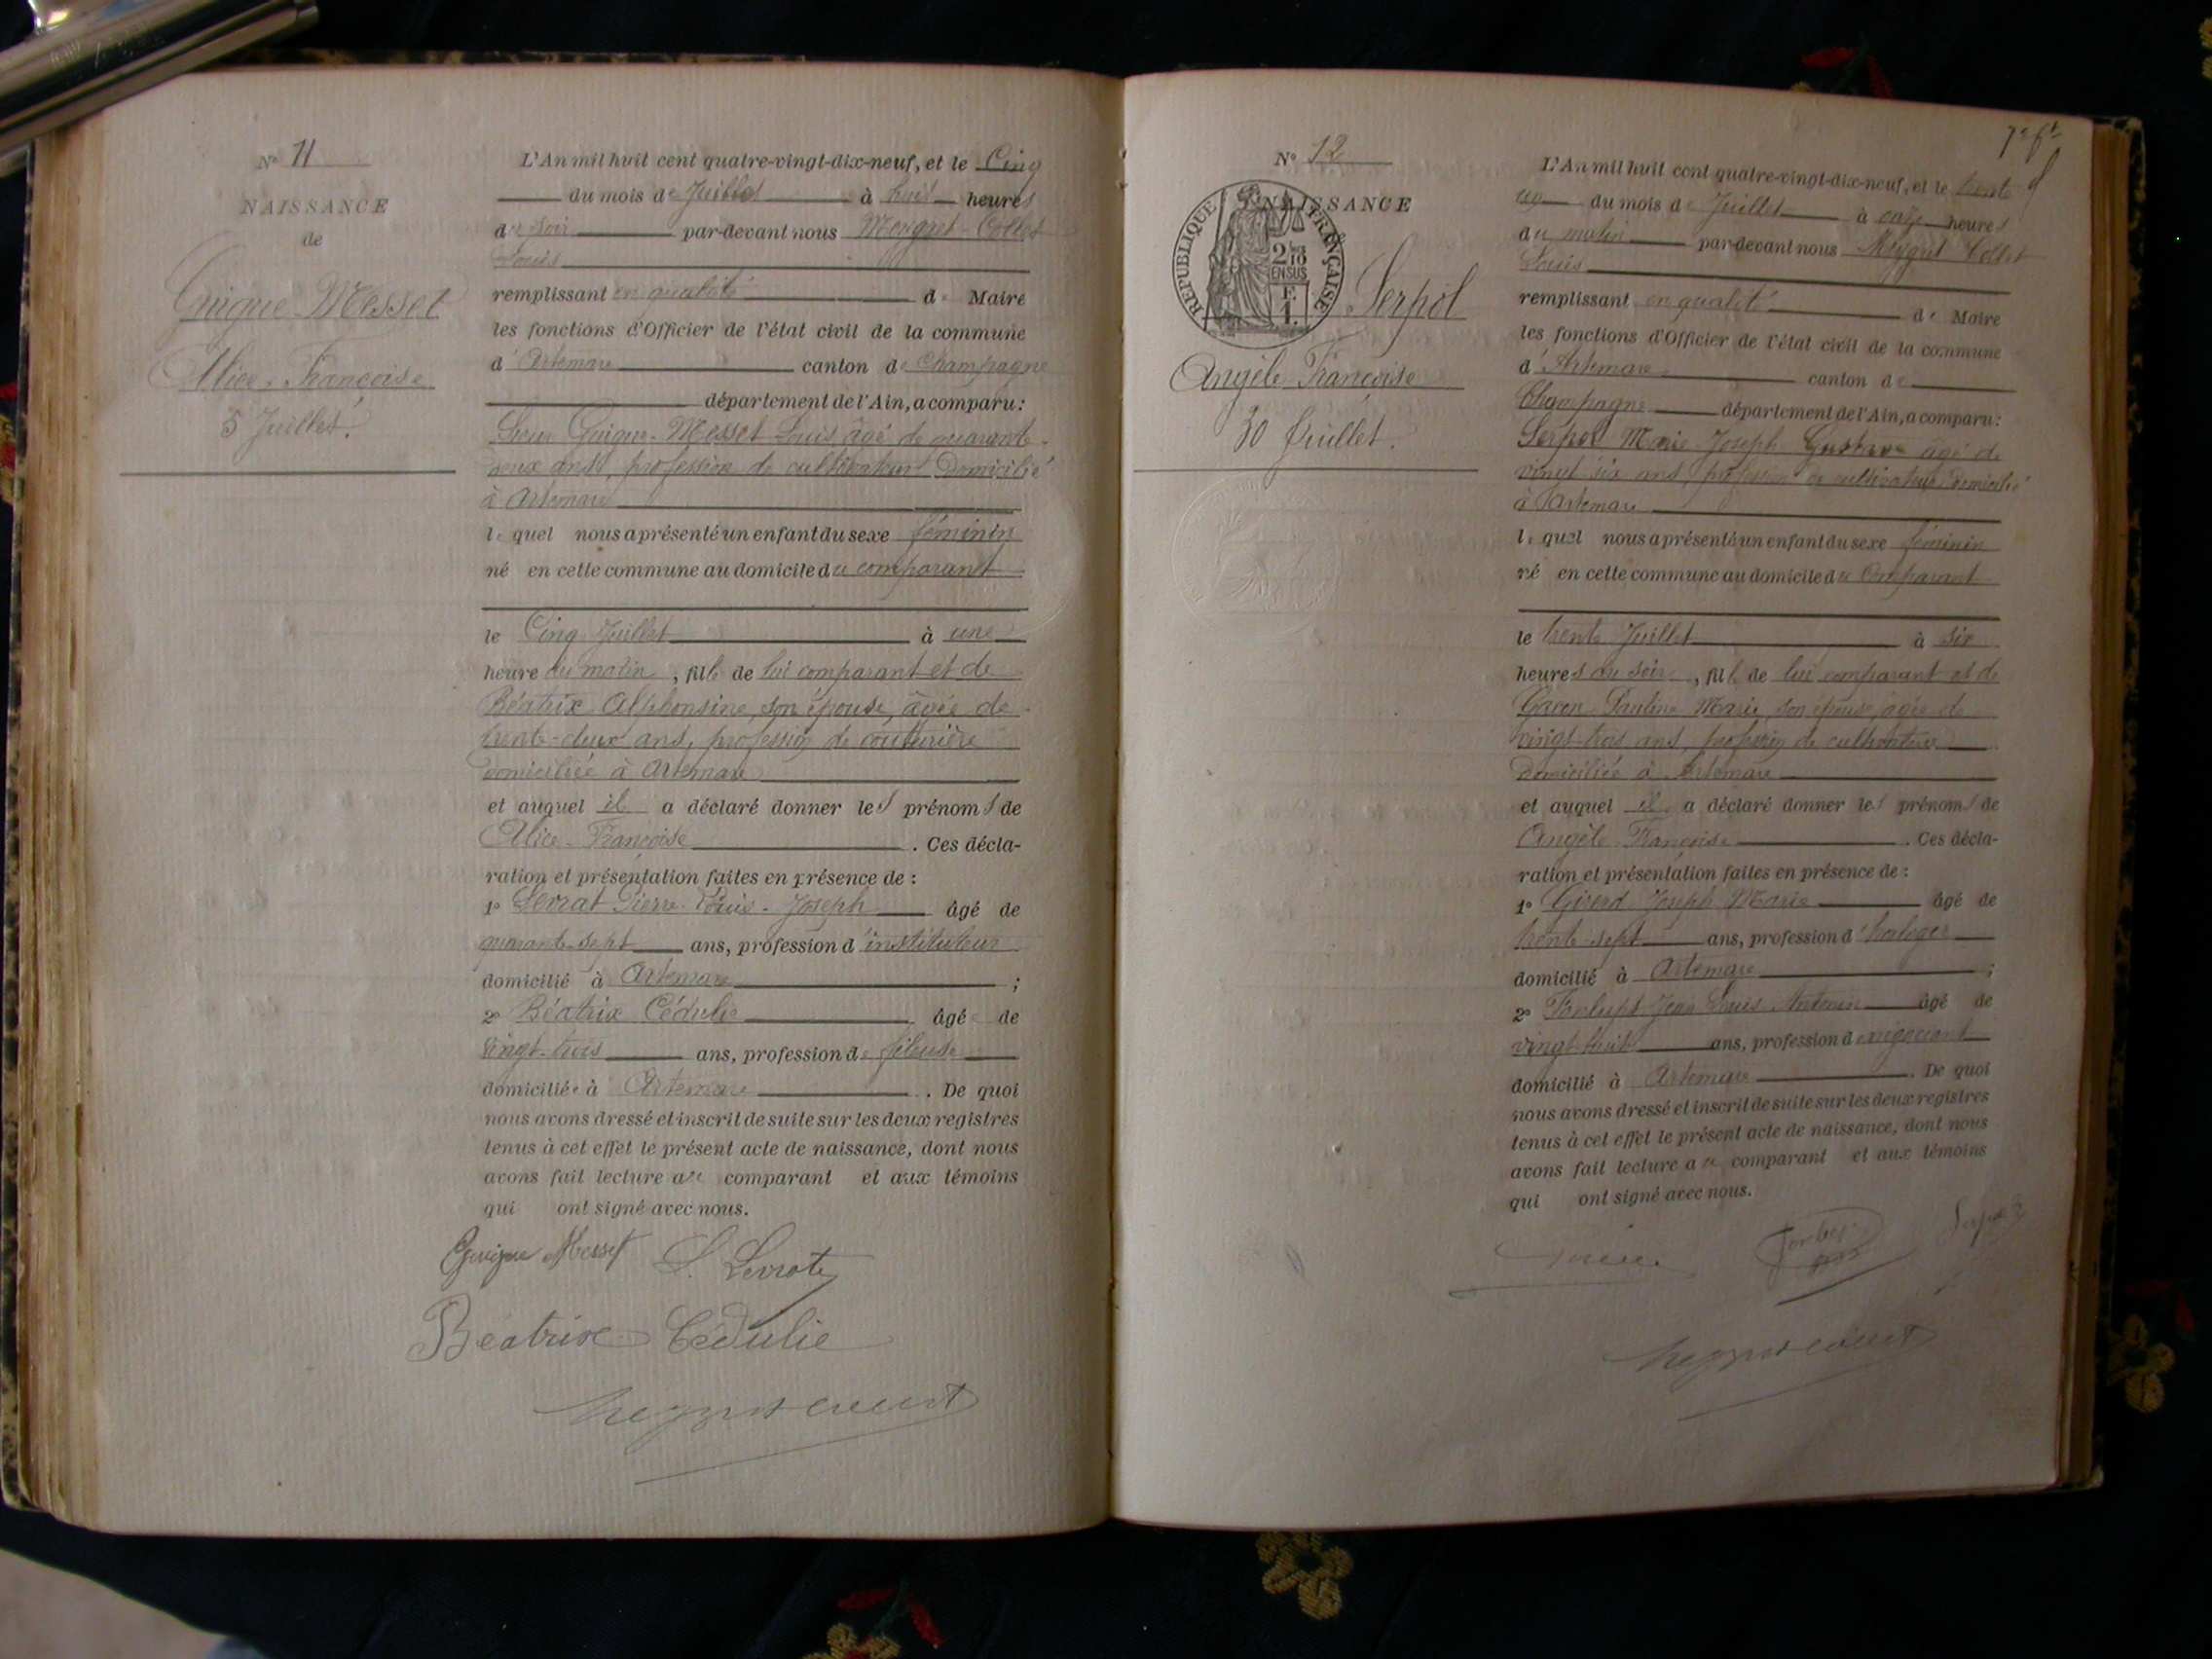 N° 11
NAISSANCE
de
Guigue-Messet
Alice-Françoise
5 Juillet.
L'An mil huit cent quatre-vingt-dix-neuf, et le Cinq
du mois de Juillet à huit heures
du soir par-devant nous Meygret-Collet
Louis
remplissant en qualité de Maire
les fonctions d'Officier de l'état civil de la commune
d'Artemare canton de Champagne
département de l'Ain, a comparu:
Sieur Guigue-Messet Louis, âgé de quarante-
deux ans, profession de cultivateur Domicilié
à Artemare
lequel nous a présenté un enfant du sexe féminin
né en cette commune au domicile du comparant
le Cinq Juillet à une
heure du matin, fille de lui comparant et de
Béatrix Alphonsine, son épouse, âgée de
trente-deux ans, profession de couturière
domiciliée à Artemare
et auquel il a déclaré donner les prénoms de
Alice-Françoise. Ces décla-
ration et présentation faites en présence de :
1° Levrat Pierre-Louis-Joseph âgé de
quarante-sept ans, profession d'instituteur
domicilié à Artemare ;
2° Béatrix Cédulie âgée de
vingt-trois ans, profession de fileuse
domiciliée à Artemare. De quoi
nous avons dressé et inscrit de suite sur les deux registres
tenus à cet effet le présent acte de naissance, dont nous
avons fait lecture au comparant et aux témoins
qui ont signé avec nous.
Guigue Messet L. Levrat
Béatrix Cédulie
N° 12
NAISSANCE
REPUBLIQUE FRANÇAISE
2/10
EN SUS
F.
1.
Serpol
Angèle Françoise
30 Juillet.
L'An mil huit cent quatre-vingt-dix-neuf, et le trente
un du mois de Juillet à onze heures
du matin par-devant nous Meygret Collet
Louis
remplissant en qualité de Maire
les fonctions d'Officier de l'état civil de la commune
d'Artemare canton de
Champagne département de l'Ain, a comparu:
Serpol Marie Joseph Gustave âgé de
vingt six ans, profession de cultivateur Domicilié
à Artemare
lequel nous a présenté un enfant du sexe féminin
né en cette commune au domicile du comparant
le trente Juillet à six
heures du soir, fille de lui comparant et de
Pauline Marie, son épouse, âgée de
vingt-trois ans, profession de cultivatrice
Domiciliée à Artemare
et auquel il a déclaré donner les prénoms de
Angèle Françoise. Ces décla-
ration et présentation faites en présence de :
1° Girerd Joseph Marie âgé de
trente-sept ans, profession d'horloger
domicilié à Artemare ;
2° Jean Louis Antonin âgé de
vingt huit ans, profession de négociant
domicilié à Artemare. De quoi
nous avons dressé et inscrit de suite sur les deux registres
tenus à cet effet le présent acte de naissance, dont nous
avons fait lecture au comparant et aux témoins
qui ont signé avec nous.
Serpol